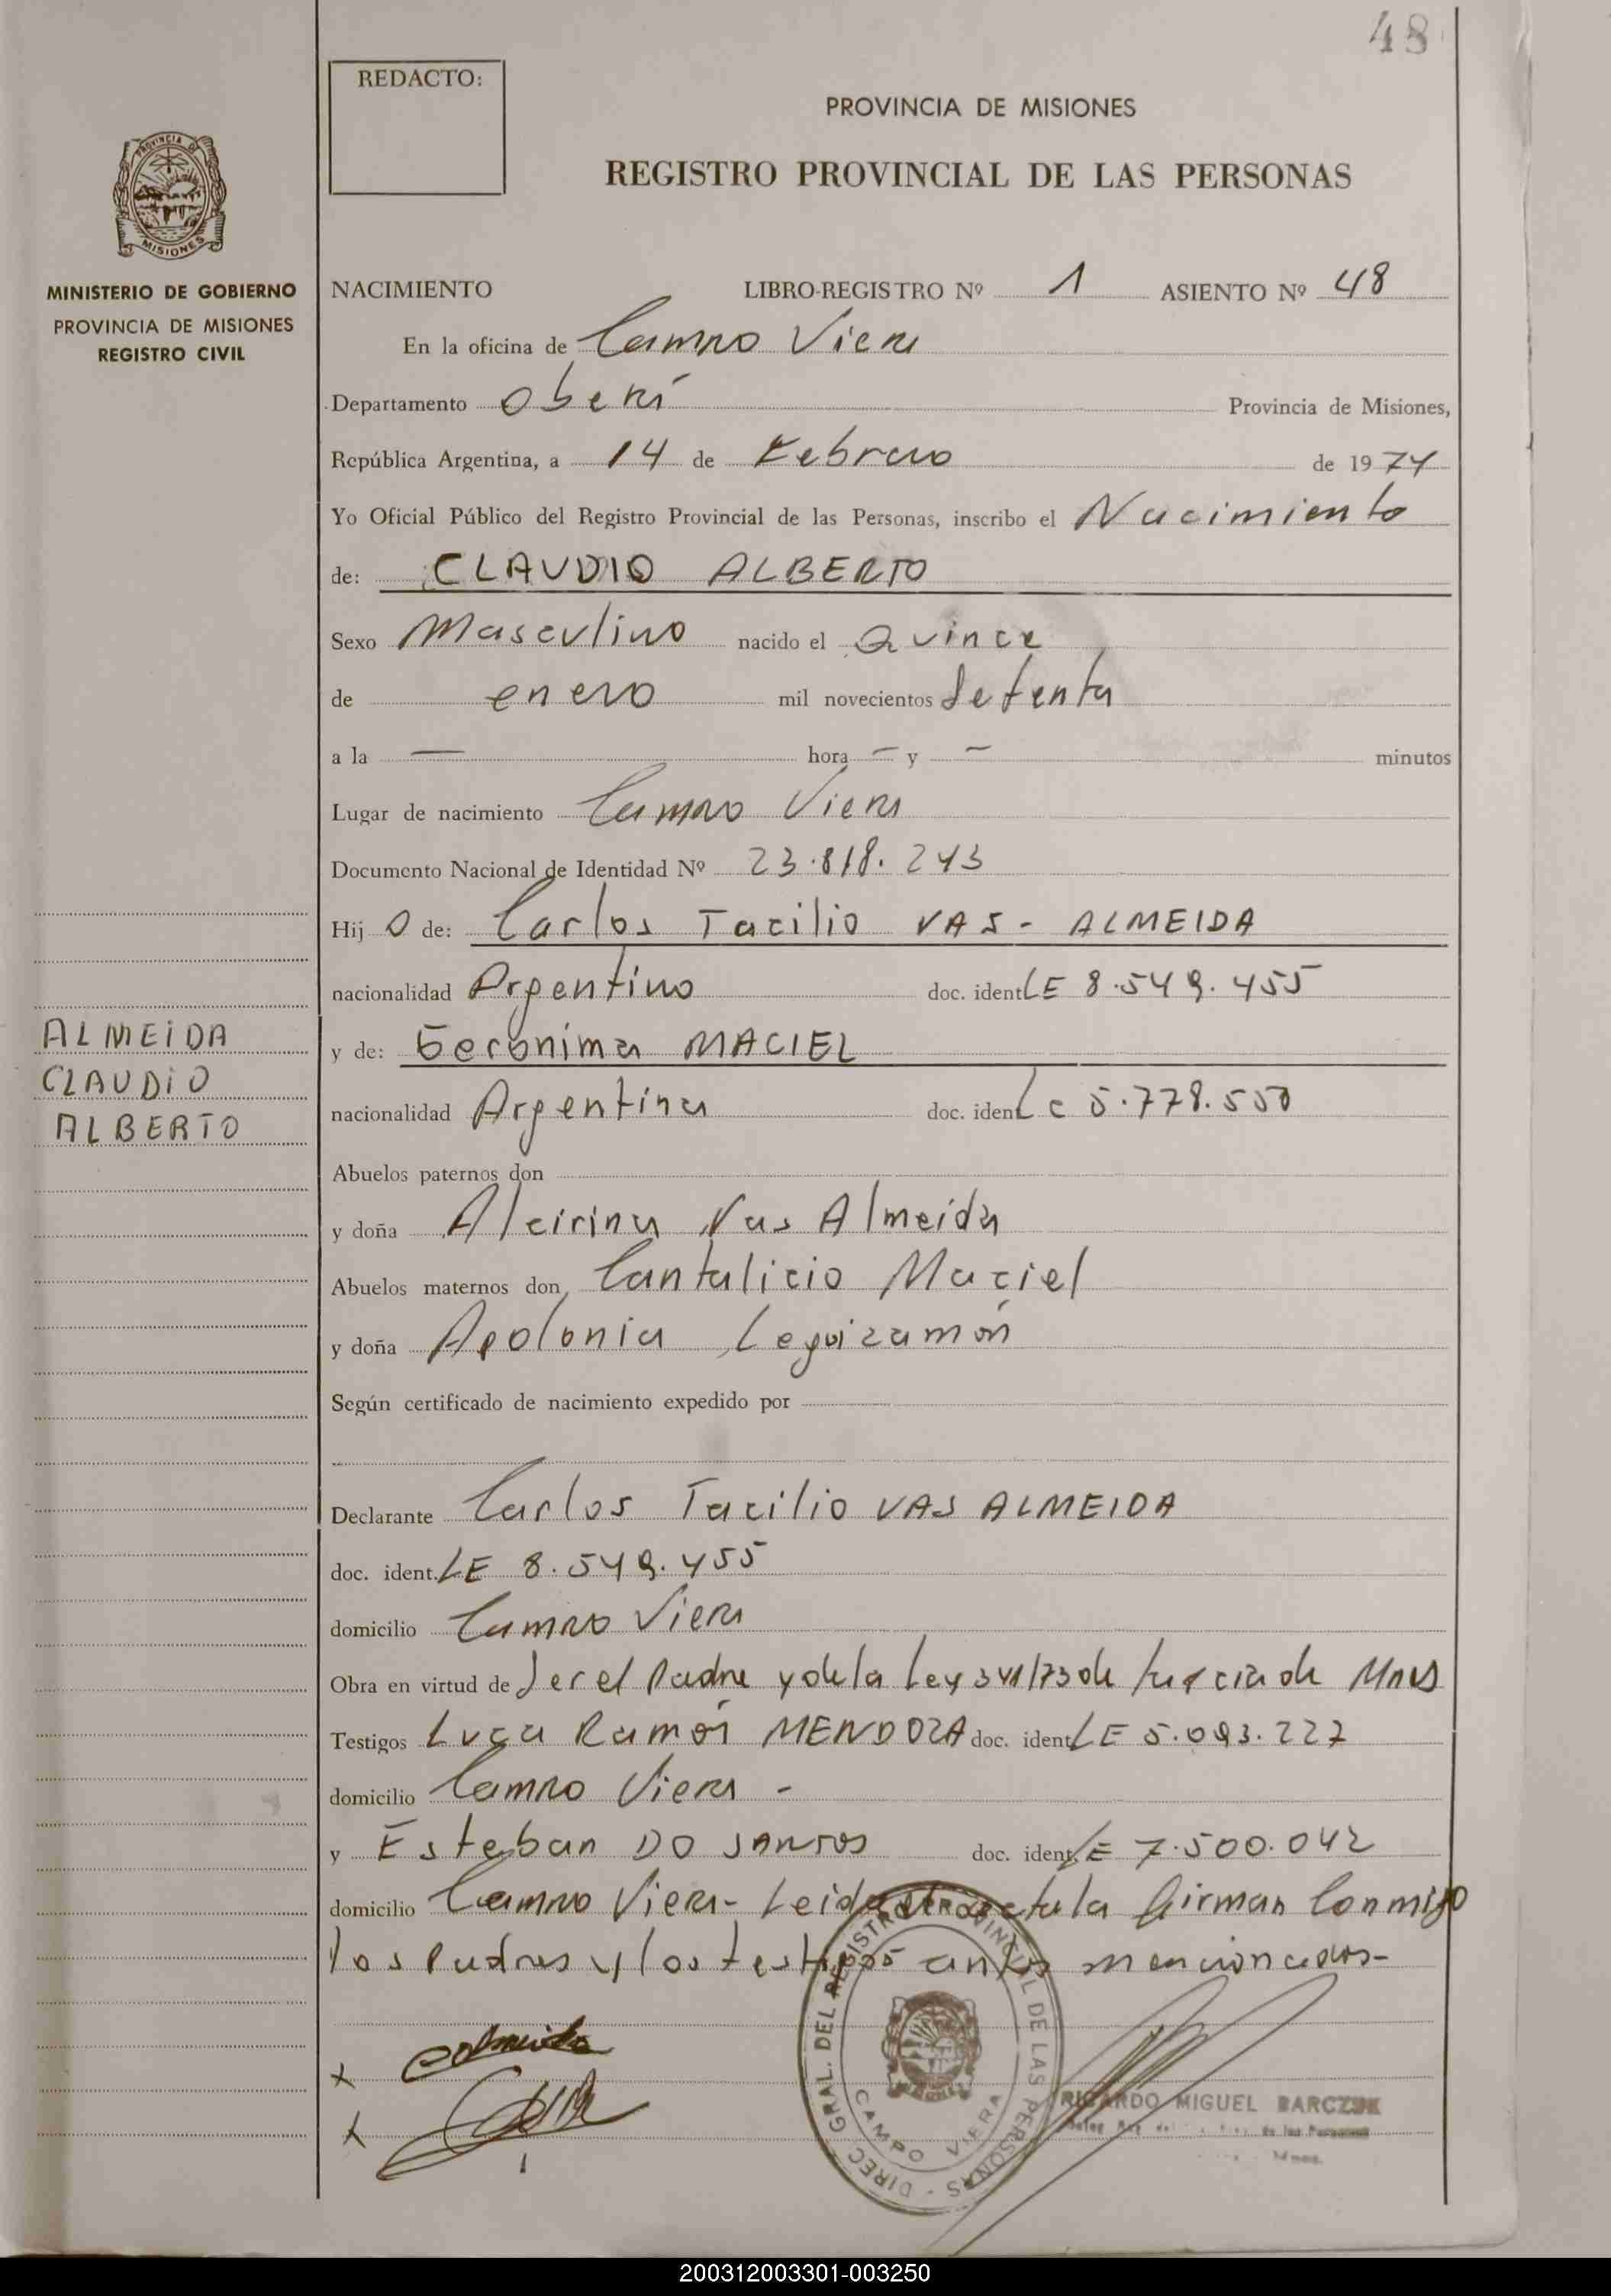 48
REDACTO:
PROVINCIA DE MISIONES
REGISTRO PROVINCIAL DE LAS PERSONAS
PROVINCIA DE
MISIONES
MINISTERIO DE GOBIERNO
PROVINCIA DE MISIONES
REGISTRO CIVIL
NACIMIENTO LIBRO-REGISTRO Nº 1 ASIENTO Nº 48
En la oficina de Campo Viera
Departamento Oberá Provincia de Misiones,
República Argentina, a 14 de Febrero de 1974
Yo Oficial Público del Registro Provincial de las Personas, inscribo el Nacimiento
de: CLAUDIO ALBERTO
Sexo Masculino nacido el Quince
de enero mil novecientos Setenta
a la — hora — y — minutos
Lugar de nacimiento Campo Viera
Documento Nacional de Identidad Nº 23.818.243
Hij o de: Carlos Tacilio VAS - ALMEIDA
nacionalidad Argentino doc. ident LE 8.549.455
y de: Gerónima MACIEL
nacionalidad Argentina doc. ident LC 5.778.550
ALMEIDA
CLAUDIO
ALBERTO
Abuelos paternos don
y doña Alcirina Vas Almeida
Abuelos maternos don Cantalicio Maciel
y doña Apolonia Leguizamón
Según certificado de nacimiento expedido por
Declarante Carlos Tacilio VAS ALMEIDA
doc. ident. LE 8.549.455
domicilio Campo Viera
Obra en virtud de Ser el Padre y de la Ley 341/73 de de Mnes
Testigos Luca Ramón MENDOZA doc. ident LE 5.093.227
domicilio Campo Viera -
y Esteban DO SANTOS doc. ident LE 7.500.042
domicilio Campo Viera - Leida el acta la firman Conmigo
los Padres y los testigos antes mencionados -
DIREC. GRAL. DEL REGISTRO PROVINCIAL DE LAS PERSONAS -
CAMPO VIERA
RICARDO MIGUEL BARCZUK
200312003301-003250